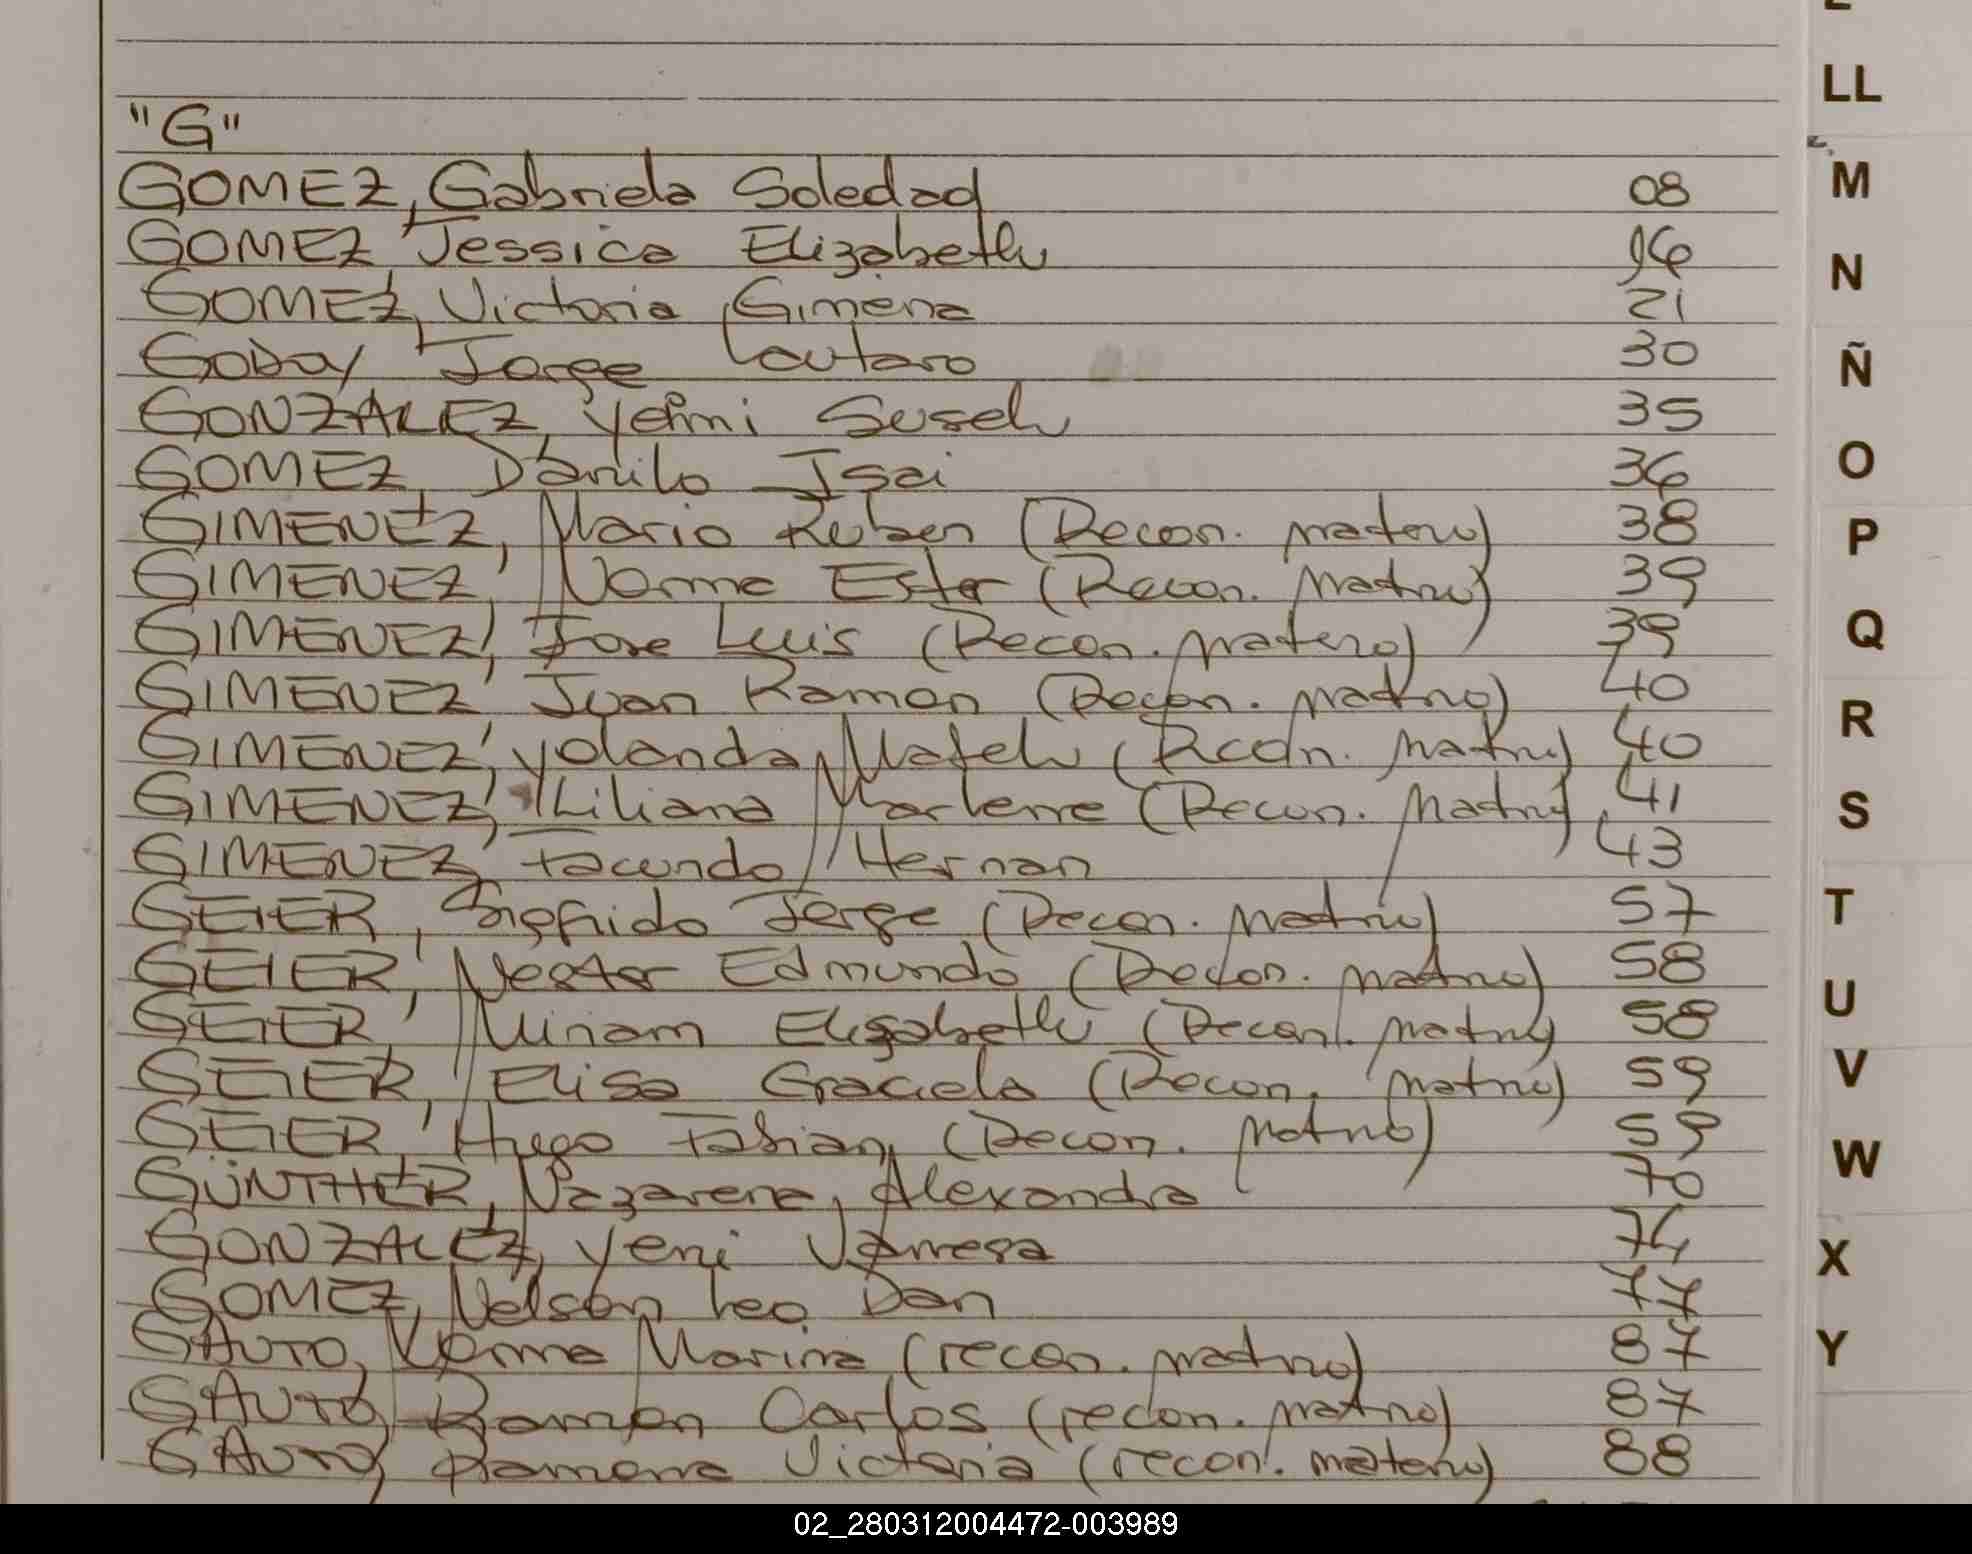 LL
"G"
GOMEZ, Gabriela Soledad 08
M
GOMEZ, Jessica Elizabeth 16
N
GOMEZ, Victoria Gimena 21
GODOY, Jorge Lautaro 30
Ñ
GONZALEZ, Yehmi Suseh 35
GOMEZ, Danilo Isai 36
O
GIMENEZ, Mario Ruben (Recon. materno) 38
P
GIMENEZ, Norma Ester (Recon. Matrno) 39
GIMENEZ, Jose Luis (Recon. materno) 39
Q
GIMENEZ, Juan Ramon (Recon. matrno) 40
R
GIMENEZ, Yolanda (Rcon. Matrno) 40
GIMENEZ, Liliana Marlene (Recon. Matrno) 41
S
GIMENEZ, Facundo Hernan 43
GEIER, Sigfrido Jorge (Recon. Matrno) 57
T
GEIER, Nestor Edmundo (Recon. matrno) 58
GEIER, Miriam Elizabeth (Recon. matrno) 58
U
GEIER, Elisa Graciela (Recon. matrno) 59
V
GEIER, Hugo Fabian (Recon. Matrno) 59
GÜNTHER, Nazarena, Alexandra 70
W
GONZALEZ, Yeni Vanesa 74
X
GOMEZ, Nelson Leo Dan 77
GAUTO, Norma Marina (recon. matrno) 87
Y
GAUTO, Ramon Carlos (recon. matrno) 87
GAUTO, Ramona Victoria (recon. materno) 88
02_280312004472-003989